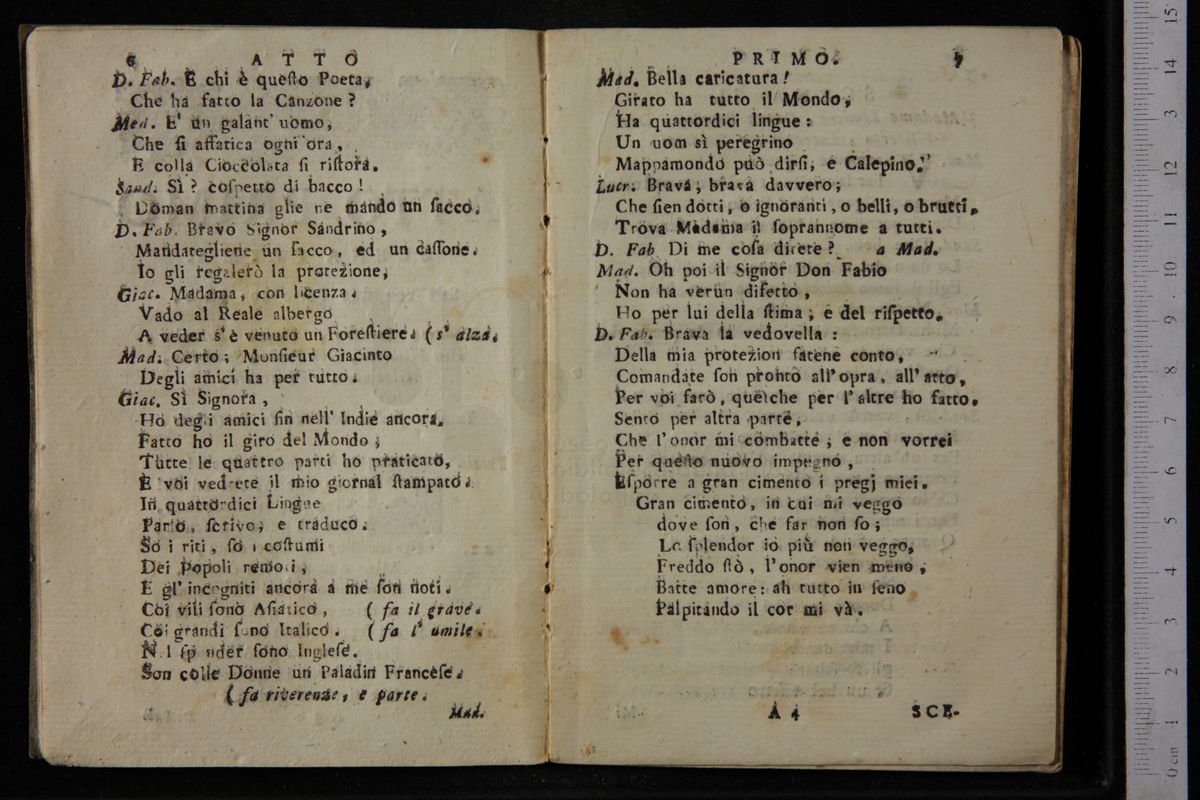 6 ATTO
D. Fab. E chi è queſto Poeta,
Che ha fatto la Canzone?
Med. E' un galant' uomo,
Che ſi affatica ogni ora,
E colla Cioccolata ſi riſtora.
Sand. Sì? coſpetto di bacco!
Doman mattina glie ne mando un ſacco.
D. Fab. Bravo Signor Sandrino,
Mandategliene un ſacco, ed un caſſone.
Io gli regalerò la protezione,
Giac. Madama, con licenza.
Vado al Reale albergo
A veder s'è venuto un Foreſtiere. (s' alza.
Mad. Certo; Monſieur Giacinto
Degli amici ha per tutto.
Giac. Sì Signora,
Ho degli amici ſin nell' Indie ancora.
Fatto ho il giro del Mondo;
Tutte le quattro parti ho praticato,
E voi vedrete il mio giornal ſtampato.
In quattordici Lingue
Parlo, ſcrivo, e traduco.
So i riti, ſo i coſtumi
Dei Popoli remoti,
E gl' incogniti ancora a me ſon noti.
Coi vili ſono Aſiatico, (fa il grave.
Coi grandi ſono Italico. (fa l' umile.
N l ſp nder ſono Ingleſe.
Son colle Donne un Paladin Franceſe.
(fa riverenze, e parte.
Mad.
PRIMO. 7
Mad. Bella caricatura!
Girato ha tutto il Mondo,
Ha quattordici lingue:
Un uom sì peregrino
Mappamondo può dirſi, e Calepino.
Lucr. Brava, brava davvero;
Che ſien dotti, o ignoranti, o belli, o brutti,
Trova Madama il ſoprannome a tutti.
D. Fab Di me coſa direte? a Mad.
Mad. Oh poi il Signor Don Fabio
Non ha verun difetto,
Ho per lui della ſtima; e del riſpetto.
D. Fab. Brava la vedovella:
Della mia protezion fatene conto,
Comandate ſon pronto all' opra, all' atto,
Per voi farò, quel che per l' altre ho fatto.
Sento per altra parte,
Che l'onor mi combatte; e non vorrei
Per queſto nuovo impegno,
Eſporre a gran cimento i pregj miei.
Gran cimento, in cui mi veggo
dove ſon, che far non ſo;
Lo ſplendor io più non veggo,
Freddo ſtò, l'onor vien meno,
Batte amore: ah tutto in ſeno
Palpitando il cor mi và.
A 4 SCE-
0 cm 1 2 3 4 5 6 7 8 9 10 11 12 13 14 15